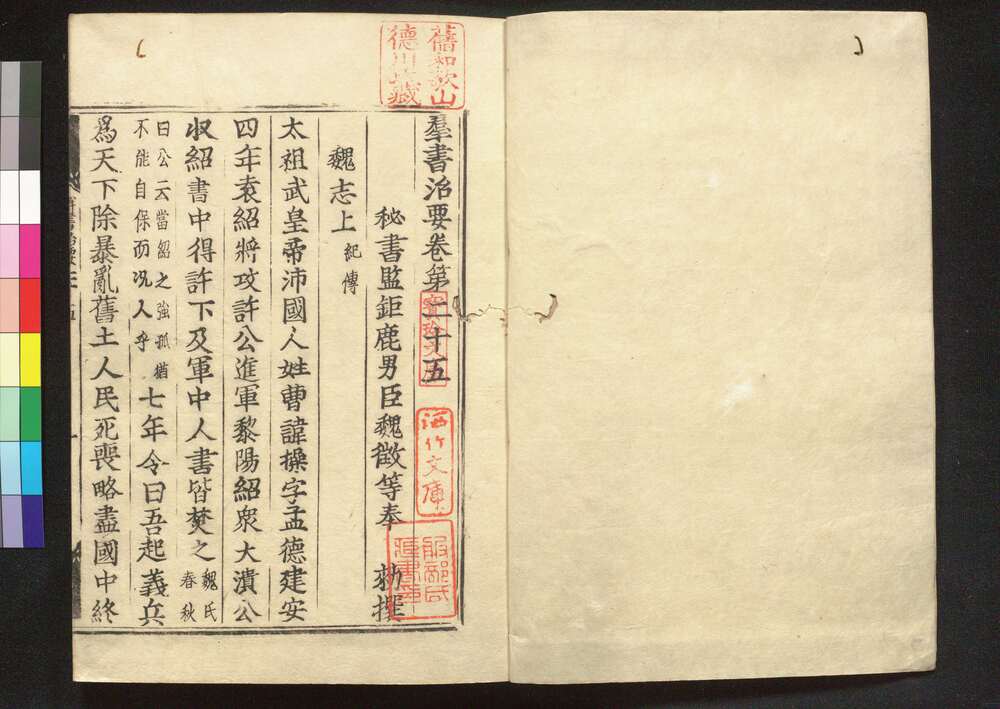 羣書治要卷第二十五
秘書監鉅鹿男臣魏徵等奉　勑撰
魏志上 紀傳
太祖武皇帝沛國人姓曹諱操字孟德建安
四年袁紹將攻許公進軍黎陽紹衆大潰公
収紹書中得許下及軍中人書皆焚之 魏氏
春秋
曰公云當紹之強孤猶
不能自保而况人乎
七年令曰吾起義兵
爲天下除暴亂舊土人民死喪略盡國中終
海竹文庫
服部氏